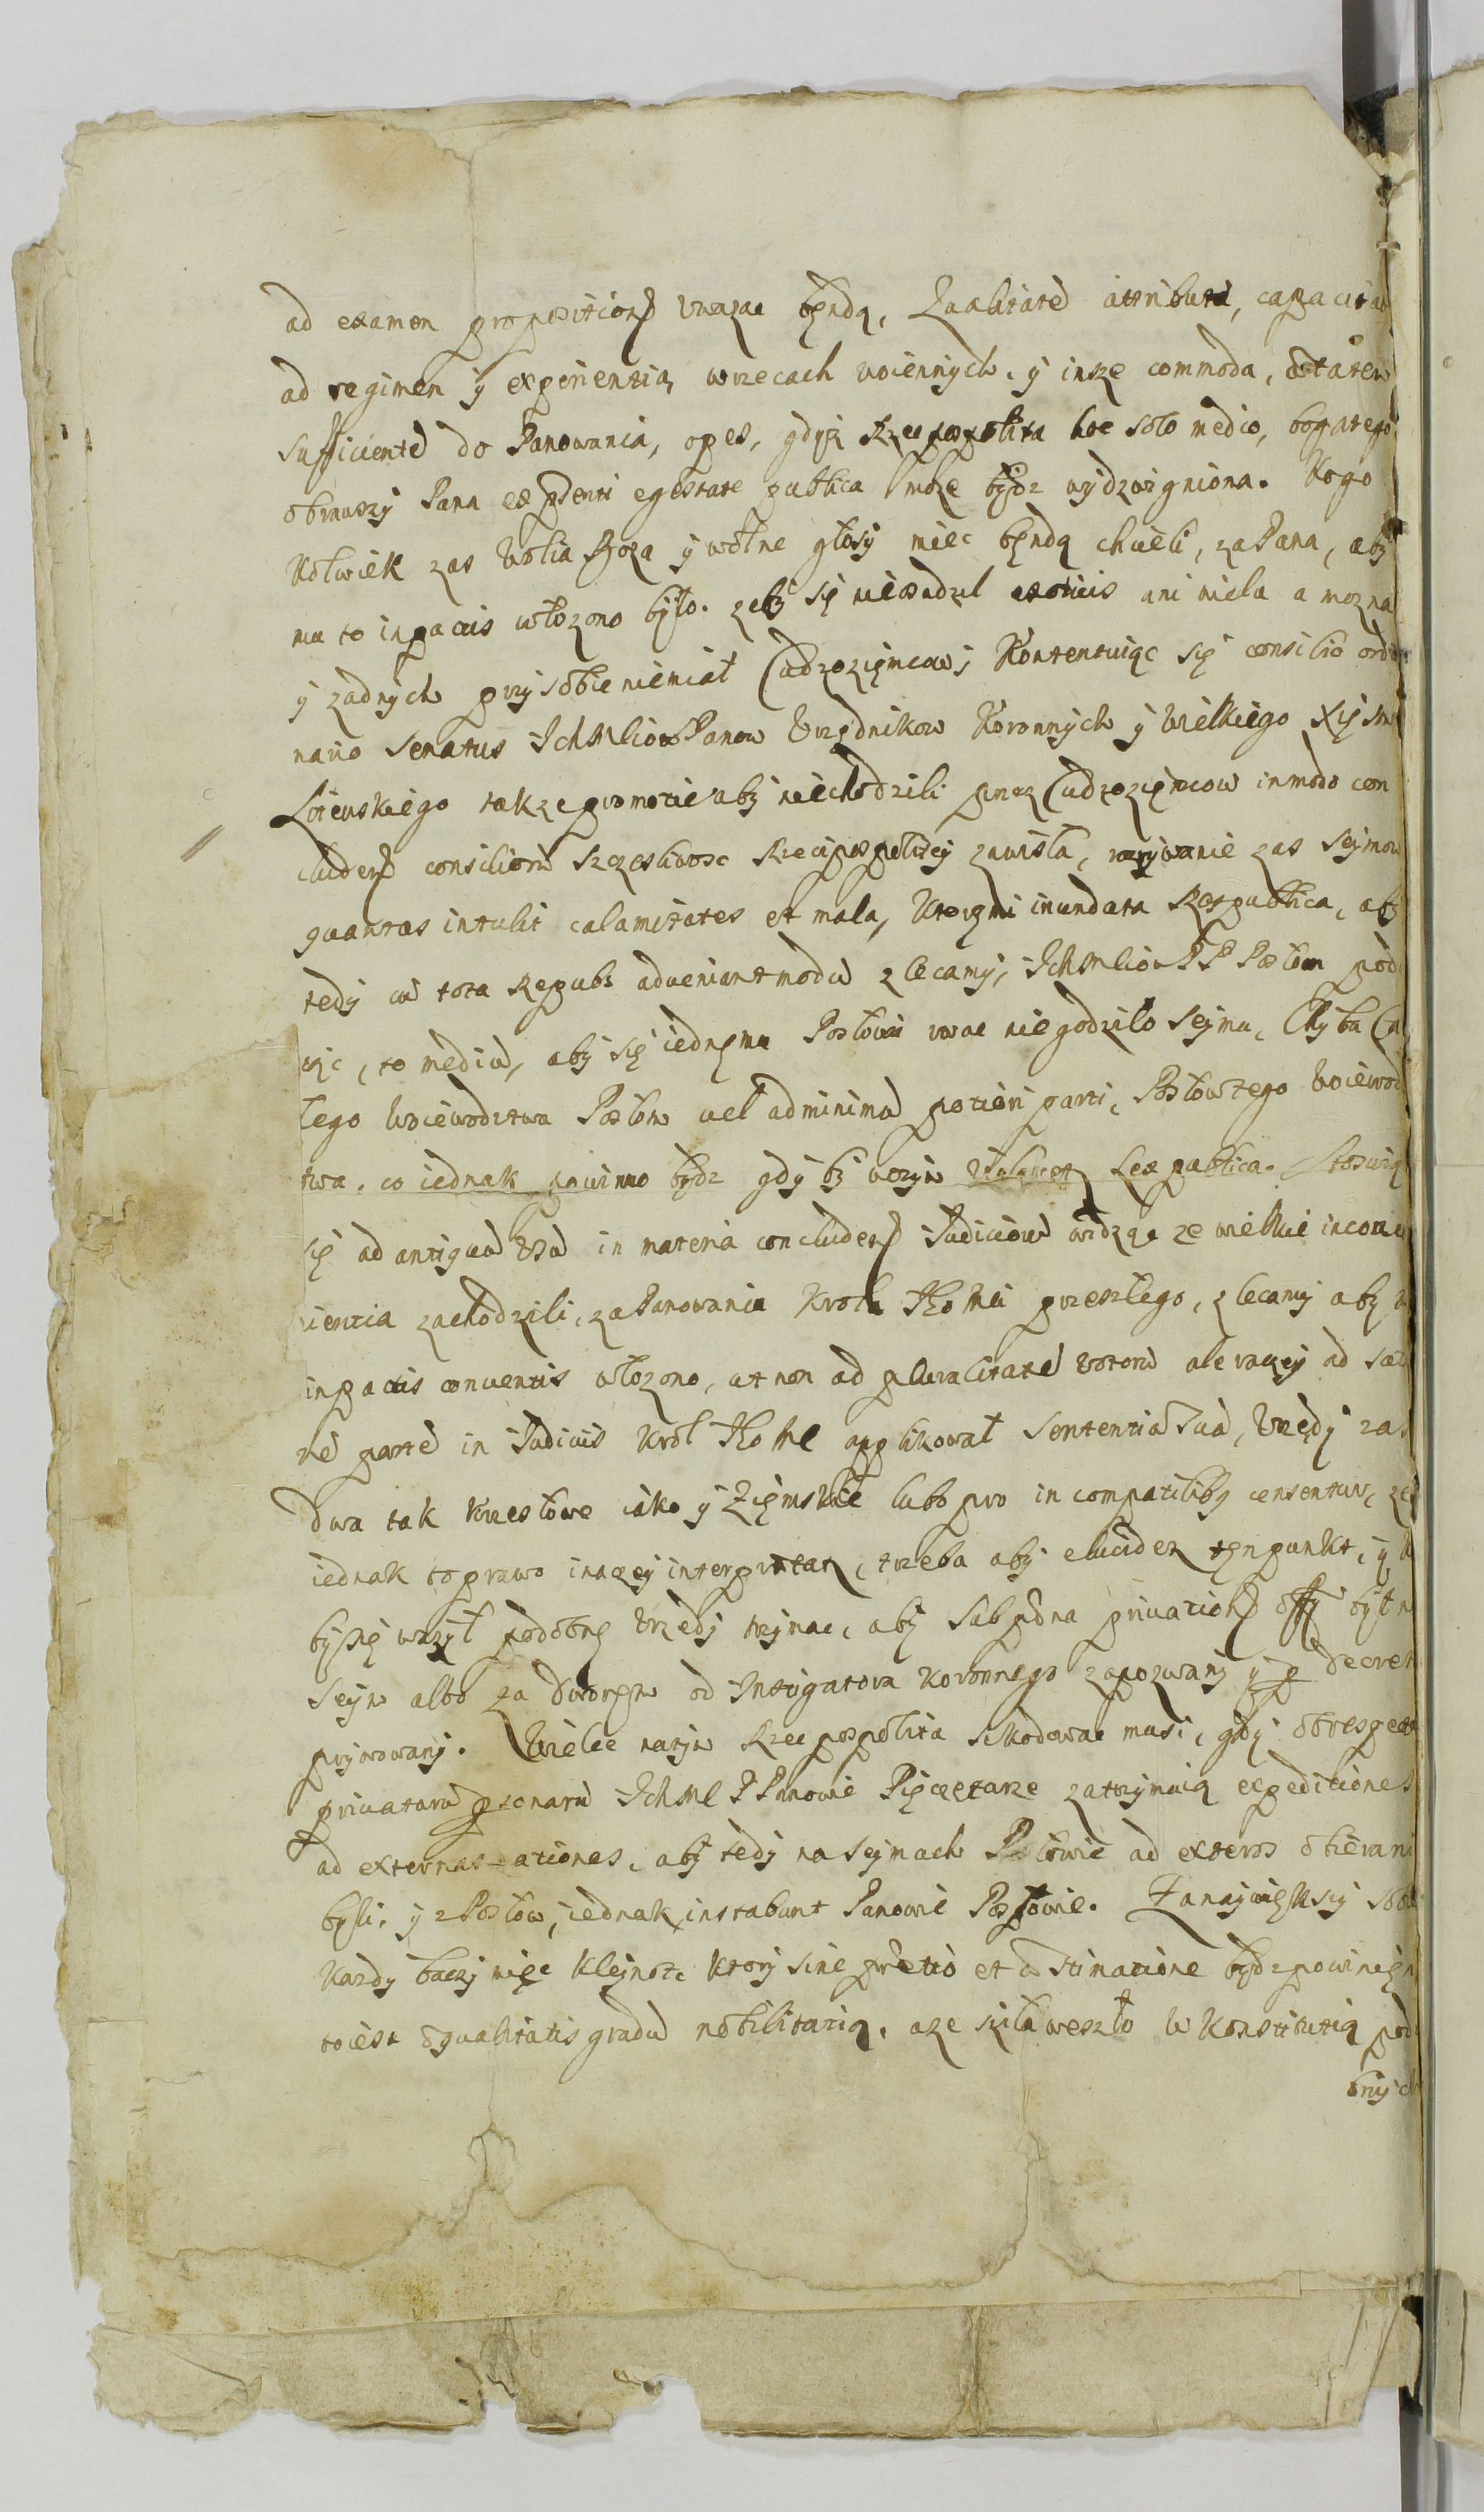 ad examen propositioni uwazac będą, Qualitatē attributa, capacitat
ad regimen y experientią wrzecach woiennych, y insze commoda, ætatem
sufficientē do Panowania, opes, gdyż Rzeczpospolita hoc solo medio, bogatego
obrawszy Pana ex pñti egestate publica może bydz wydzwigniona. Kogo
Kolwiek zas Wolia Boża y wolne głosy miec będą chcieli, za Pana, aby
mu to in pactis włożono było. zeby się nie rządzil exoticis ani wiela a mozna
y zadnych przy sobie niemiał Cudzoziemcow, Kontentuiąc się consilio ordi
nario Senatus Ich Mściow Panow Urzędnikow Koronnych y Wielkiego Xięstwa
Litewskiego takze promotie aby niechodzili przez Cudzoziemcow in modo con
cludend consiliorū szczesliwosc Rzeczypospolitey zawisła, rozrywanie zas Seymow
quantas intulit calamitates et mala, ktorymi inundata Respublica, aby
tedy cū tota Republ adveniant modū zlecamy, Ich Mściow PP Posłom podi
wic, to mediū, aby się iednemu Posłowi rwac niegodziło Seymu, Chyba Ca
łego Woiewodztwa Posłow vel ad minimū potiori parti, Posłow tego Woiewodz
twa. co iednak powinno bydz gdy by wczym Lex publica. Stosuiąc
się ad antiquū usū in materia concludend Iudiciorū widząc ze wielkie inconve
nientia zachodzili, za Panowania Krola Jᵒ Mści przeszłego, zlecamy aby to
in pactis conventis włożono, ut non ad pluralitatē votorū ale raczey ad sa
nē partē in Iudiciis Krol Jᵒ Mć applikował sententiā suā, Urzędy zas
dwa tak Krzesłowe iako y Ziemskie lubo pro incompatilibꝰ censentur, ze
iednak to prawo inaczey interpretat, trzeba aby elucidet ten punkt, y k
by się wazył podobne Urzędy trzymac, aby sub pæna privationi offy był na
Seym albo za dworem od Instigatora Koronnego zapozwany y p decret
prywowany. Wiele natym Rzeczpospolita szkodowac musi, gdy ob respect
privatarū psonarū Ich Mć PPanowie Pieczętarze zatrzymuią expeditiones
ad externas nationes, aby tedy na Seymach Posłowie ad exteros obierani
byli, y z Posłow, iednak instabunt Panowie Posłowie. Za naywiększy sobie
Kazdy baczy miec Kleynot, ktory sine pretio et æstimatione bydz powinien
to iest æqualitatis gradū nobilitariā, aze siła weszło w Konstitutią podo
bnych